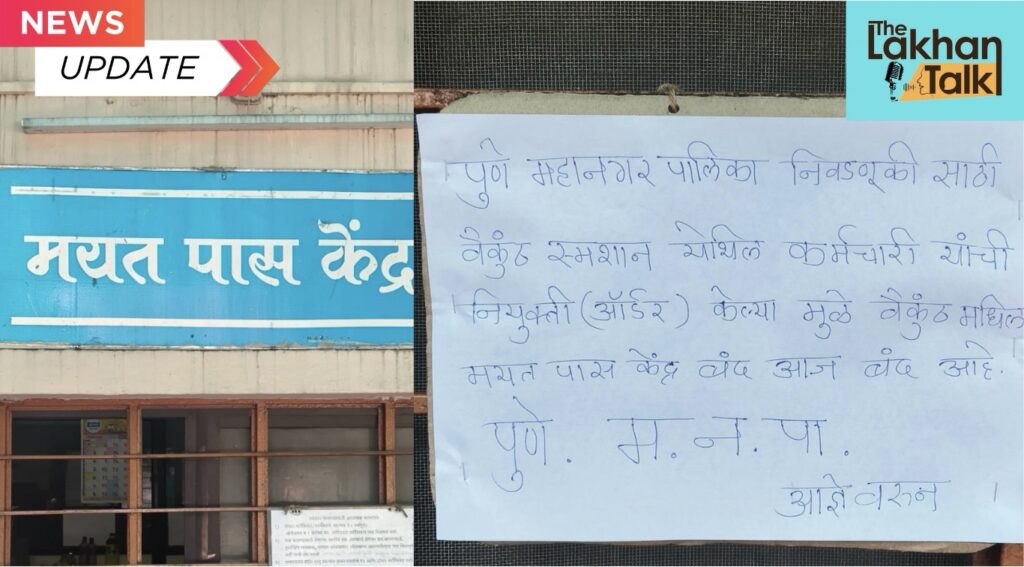 NEWS
UPDATE
The
Lakhan
Talk
मयत पास केंद्र
पुणे महानगर पालिका निवडणूकी साठी
वैकुंठ स्मशान येथिल कर्मचारी यांची
नियुक्ती (ऑर्डर) केल्या मुळे वैकुंठ मधिल
मयत पास केंद्र बंद आज बंद आहे.
पुणे. म. न. पा.
आज्ञेवरुन